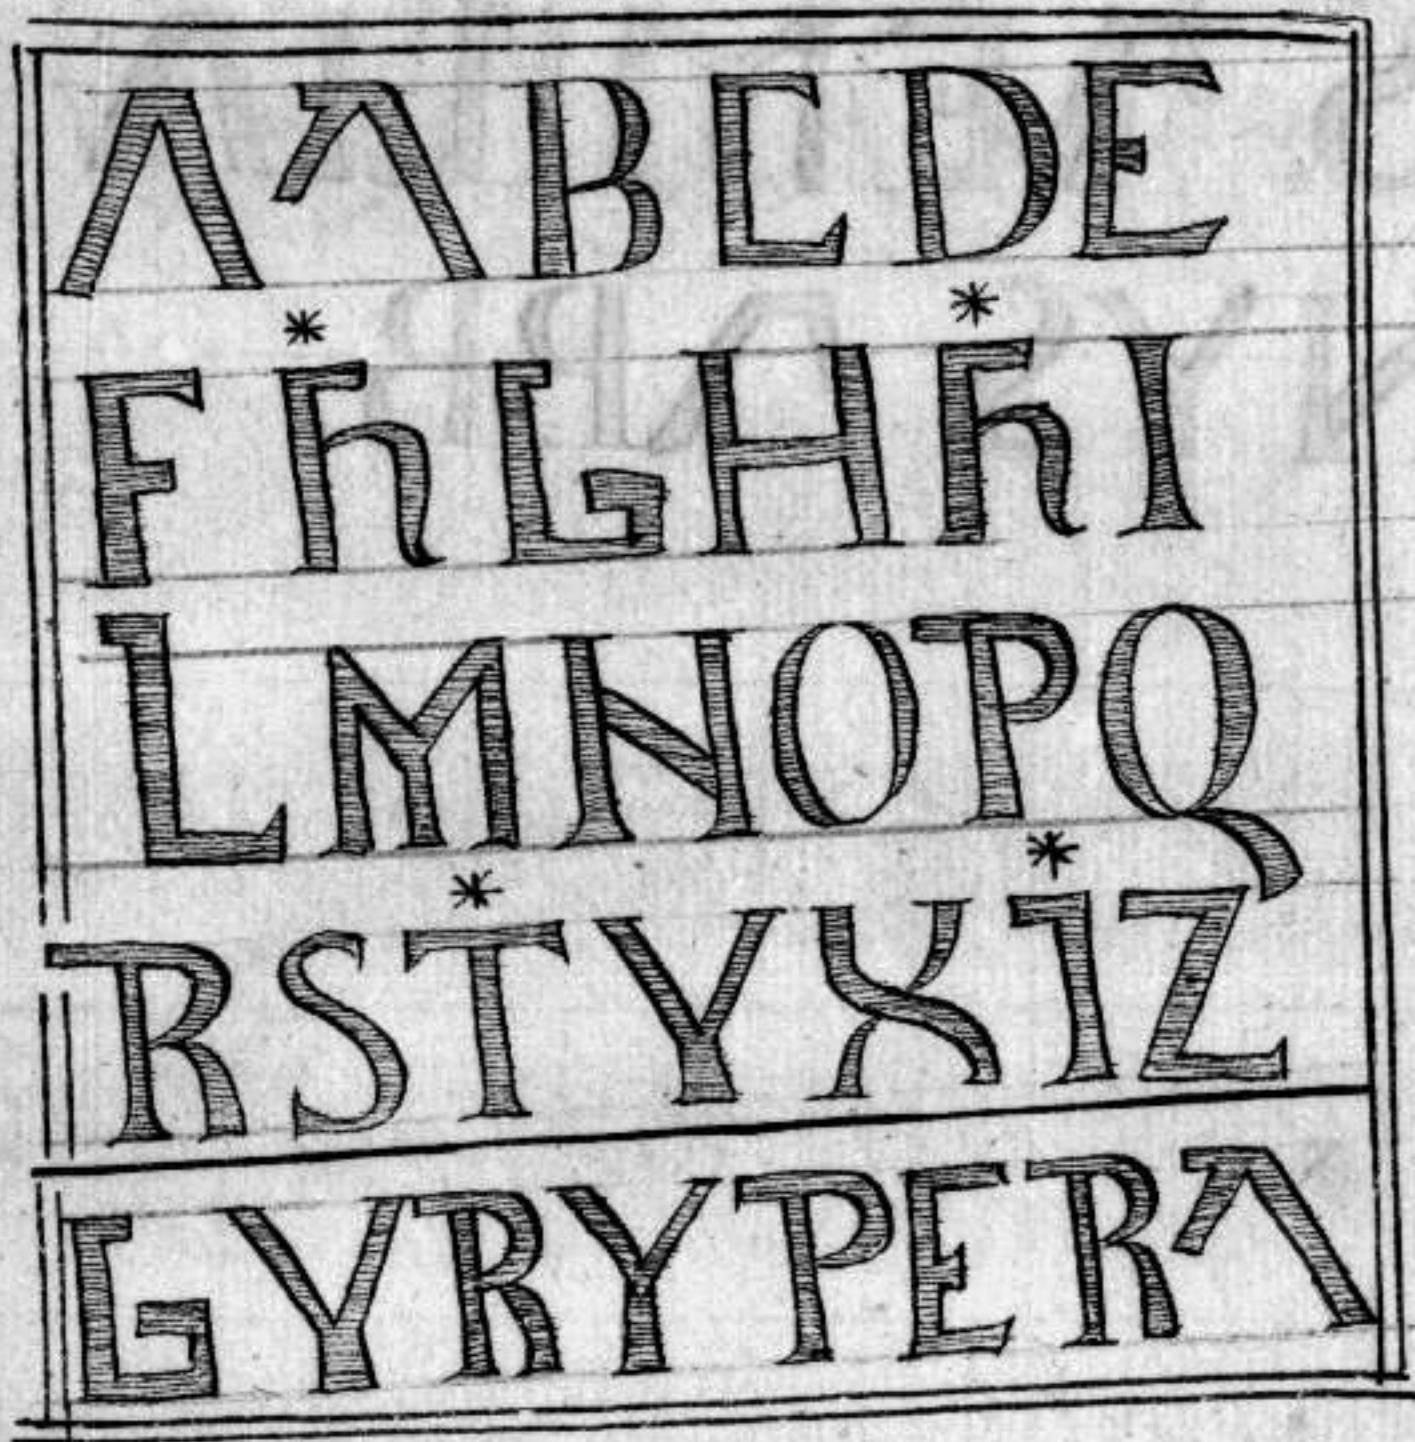 AABCDE
* *
FhGHhI
LMNOPQ
* *
RSTYXIZ
GYRYPERA